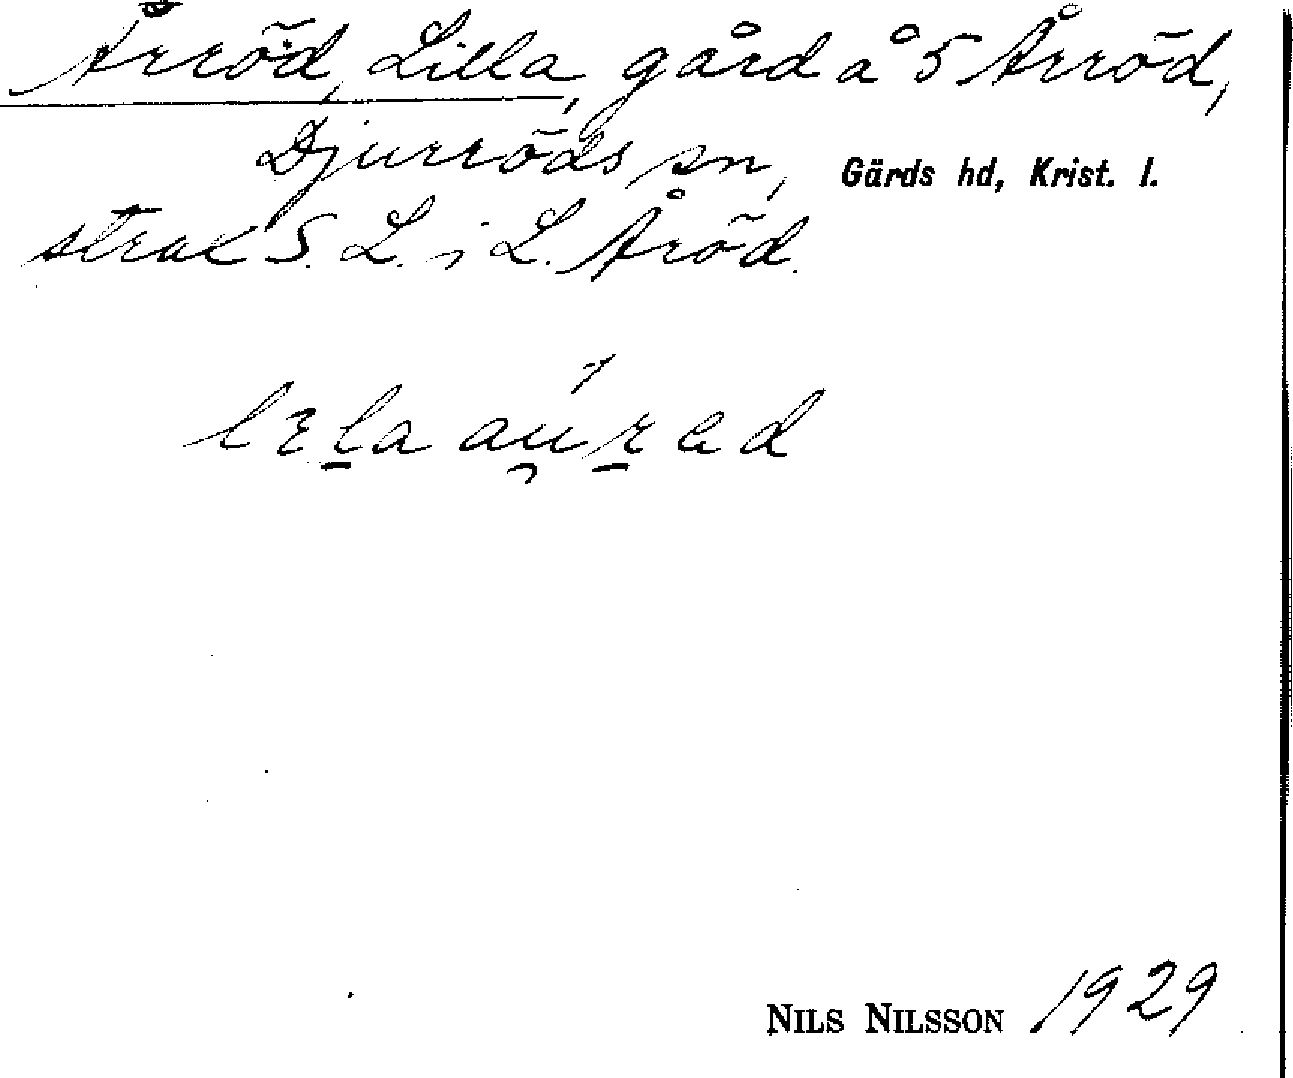 Årröd, Lilla, gård å 5 Årröd,
Djurröds sn, Gärds hd, Krist. l.
strax S. L. i L. Åröd.
NILS NILSSON 1929